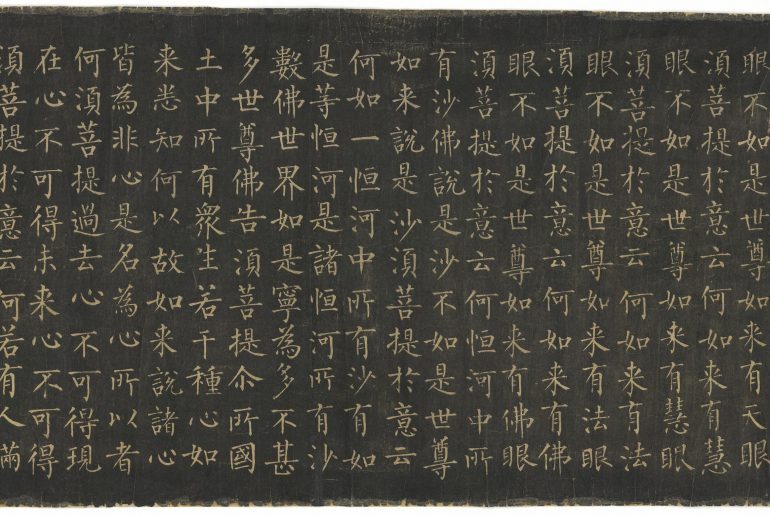 眼不如是世尊如来有天眼
湏菩提於意云何如来有慧
眼不如是世尊如来有慧眼
湏菩提於意云何如来有法
眼不如是世尊如来有法眼
湏菩提於意云何如来有佛
眼不如是世尊如来有佛眼
湏菩提於意云何恒河中所
有沙佛說是沙不如是世尊
如来說是沙湏菩提於意云
何如一恒河中所有沙有如
是等恒河是諸恒河所有沙
數佛世界如是寧為多不甚
多世尊佛告湏菩提尒所國
土中所有衆生若干種心如
来悉知何以故如来說諸心
皆為非心是名為心所以者
何湏菩提過去心不可得現
在心不可得未来心不可得
湏菩提於意云何若有人滿